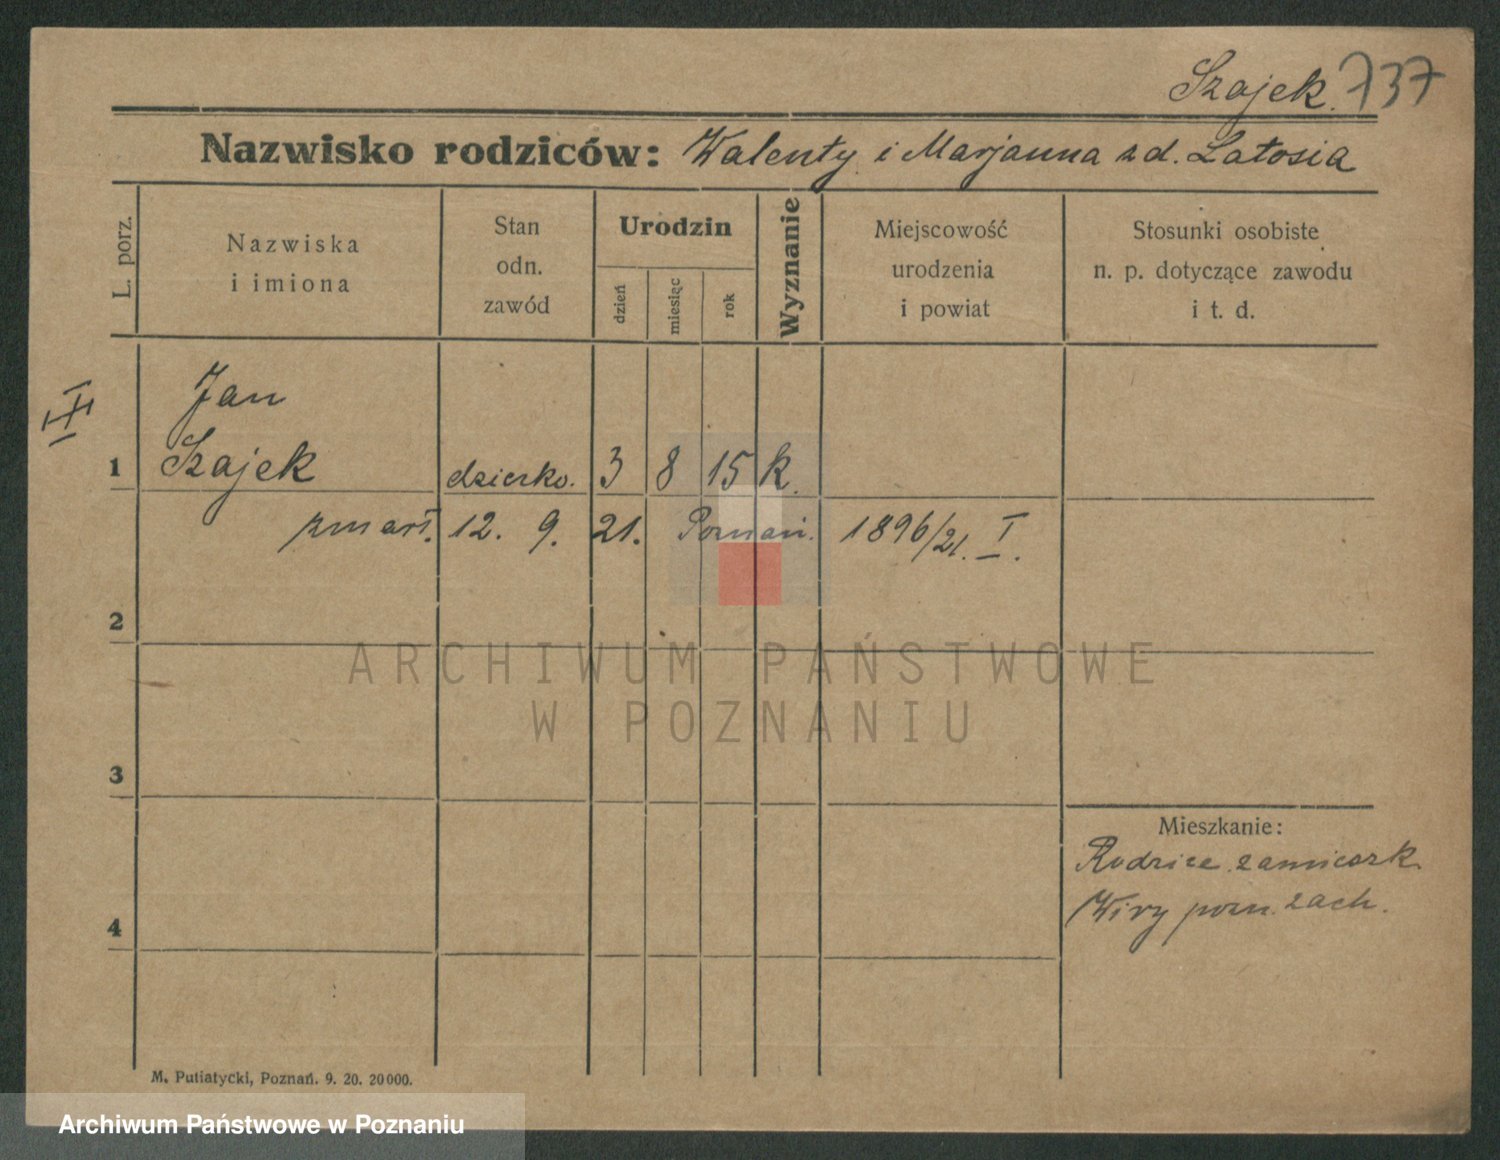 Szajek. 737
Nazwisko rodziców: Walenty i Marjanna z d. Latosia
L. porz.
Nazwiska
i imiona
Stan
odn.
zawód
Urodzin
dzień
miesiąc
rok
Wyznanie
Miejscowość
urodzenia
i powiat
Stosunki osobiste
n. p. dotyczące zawodu
i t. d.
Jan
1 Szajek dziecko. 3 8 15 k.
zmarł. 12. 9. 21. Poznań. 1896/21. I.
2
ARCHIWUM PAŃSTWOWE
W POZNANIU
3
Mieszkanie:
Rodzice zamieszk.
Wiry pozn. zach.
4
M. Putiatycki, Poznań. 9. 20. 20000.
Archiwum Państwowe w Poznaniu